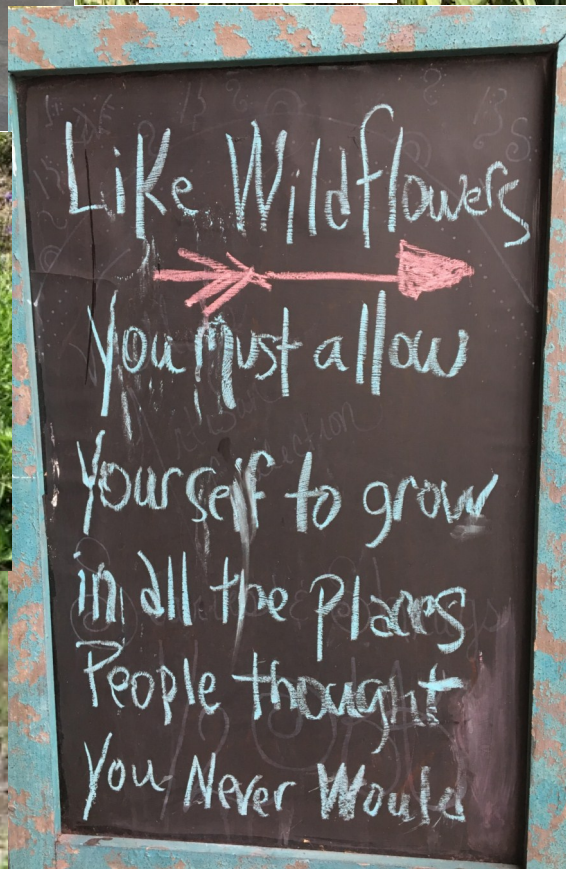 Like Wildflowers
You must allow
Yourself to grow
in all the Places
People thought
You Never Would